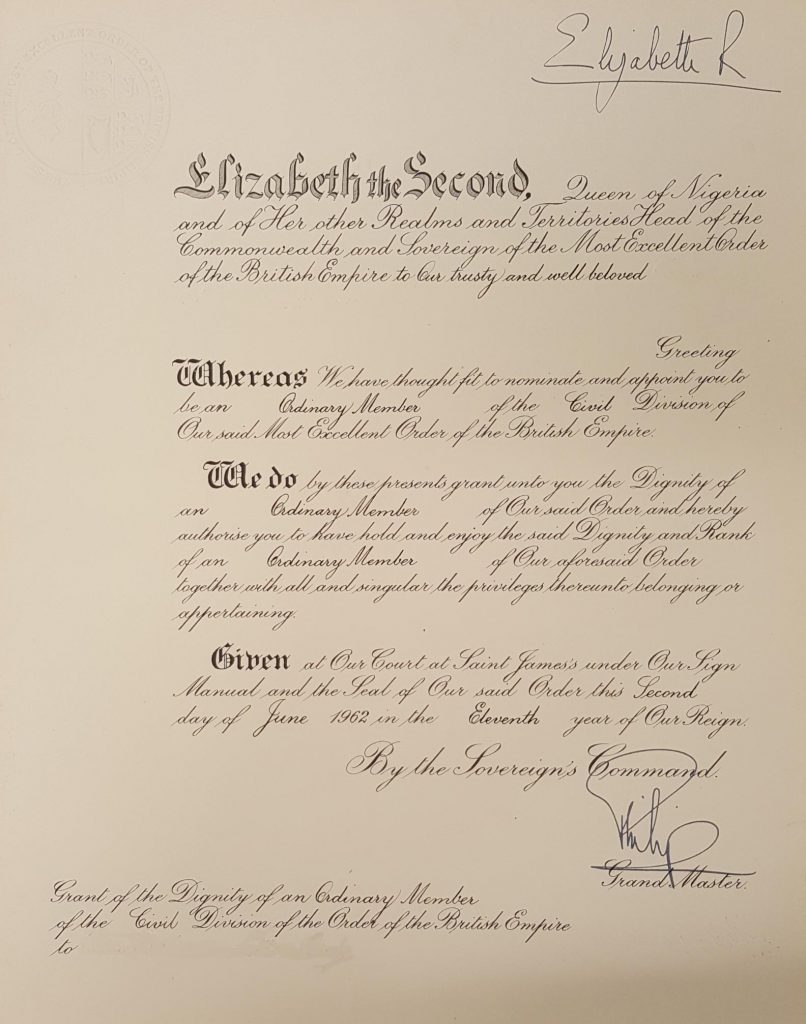 Elizabeth R
Elizabeth the Second, Queen of Nigeria
and of Her other Realms and Territories Head of the
Commonwealth and Sovereign of the Most Excellent Order
of the British Empire to Our trusty and well beloved
Greeting
Whereas We have thought fit to nominate and appoint you to
be an Ordinary Member of the Civil Division of
Our said Most Excellent Order of the British Empire.
We do by these presents grant unto you the Dignity of
an Ordinary Member of Our said Order and hereby
authorise you to have hold and enjoy the said Dignity and Rank
of an Ordinary Member of Our aforesaid Order
together with all and singular the privileges thereunto belonging or
appertaining.
Given at Our Court at Saint James's under Our Sign
Manual and the Seal of Our said Order this Second
day of June 1962 in the Eleventh year of Our Reign.
By the Sovereign's Command.
Philip
Grand Master.
Grant of the Dignity of an Ordinary Member
of the Civil Division of the Order of the British Empire
to